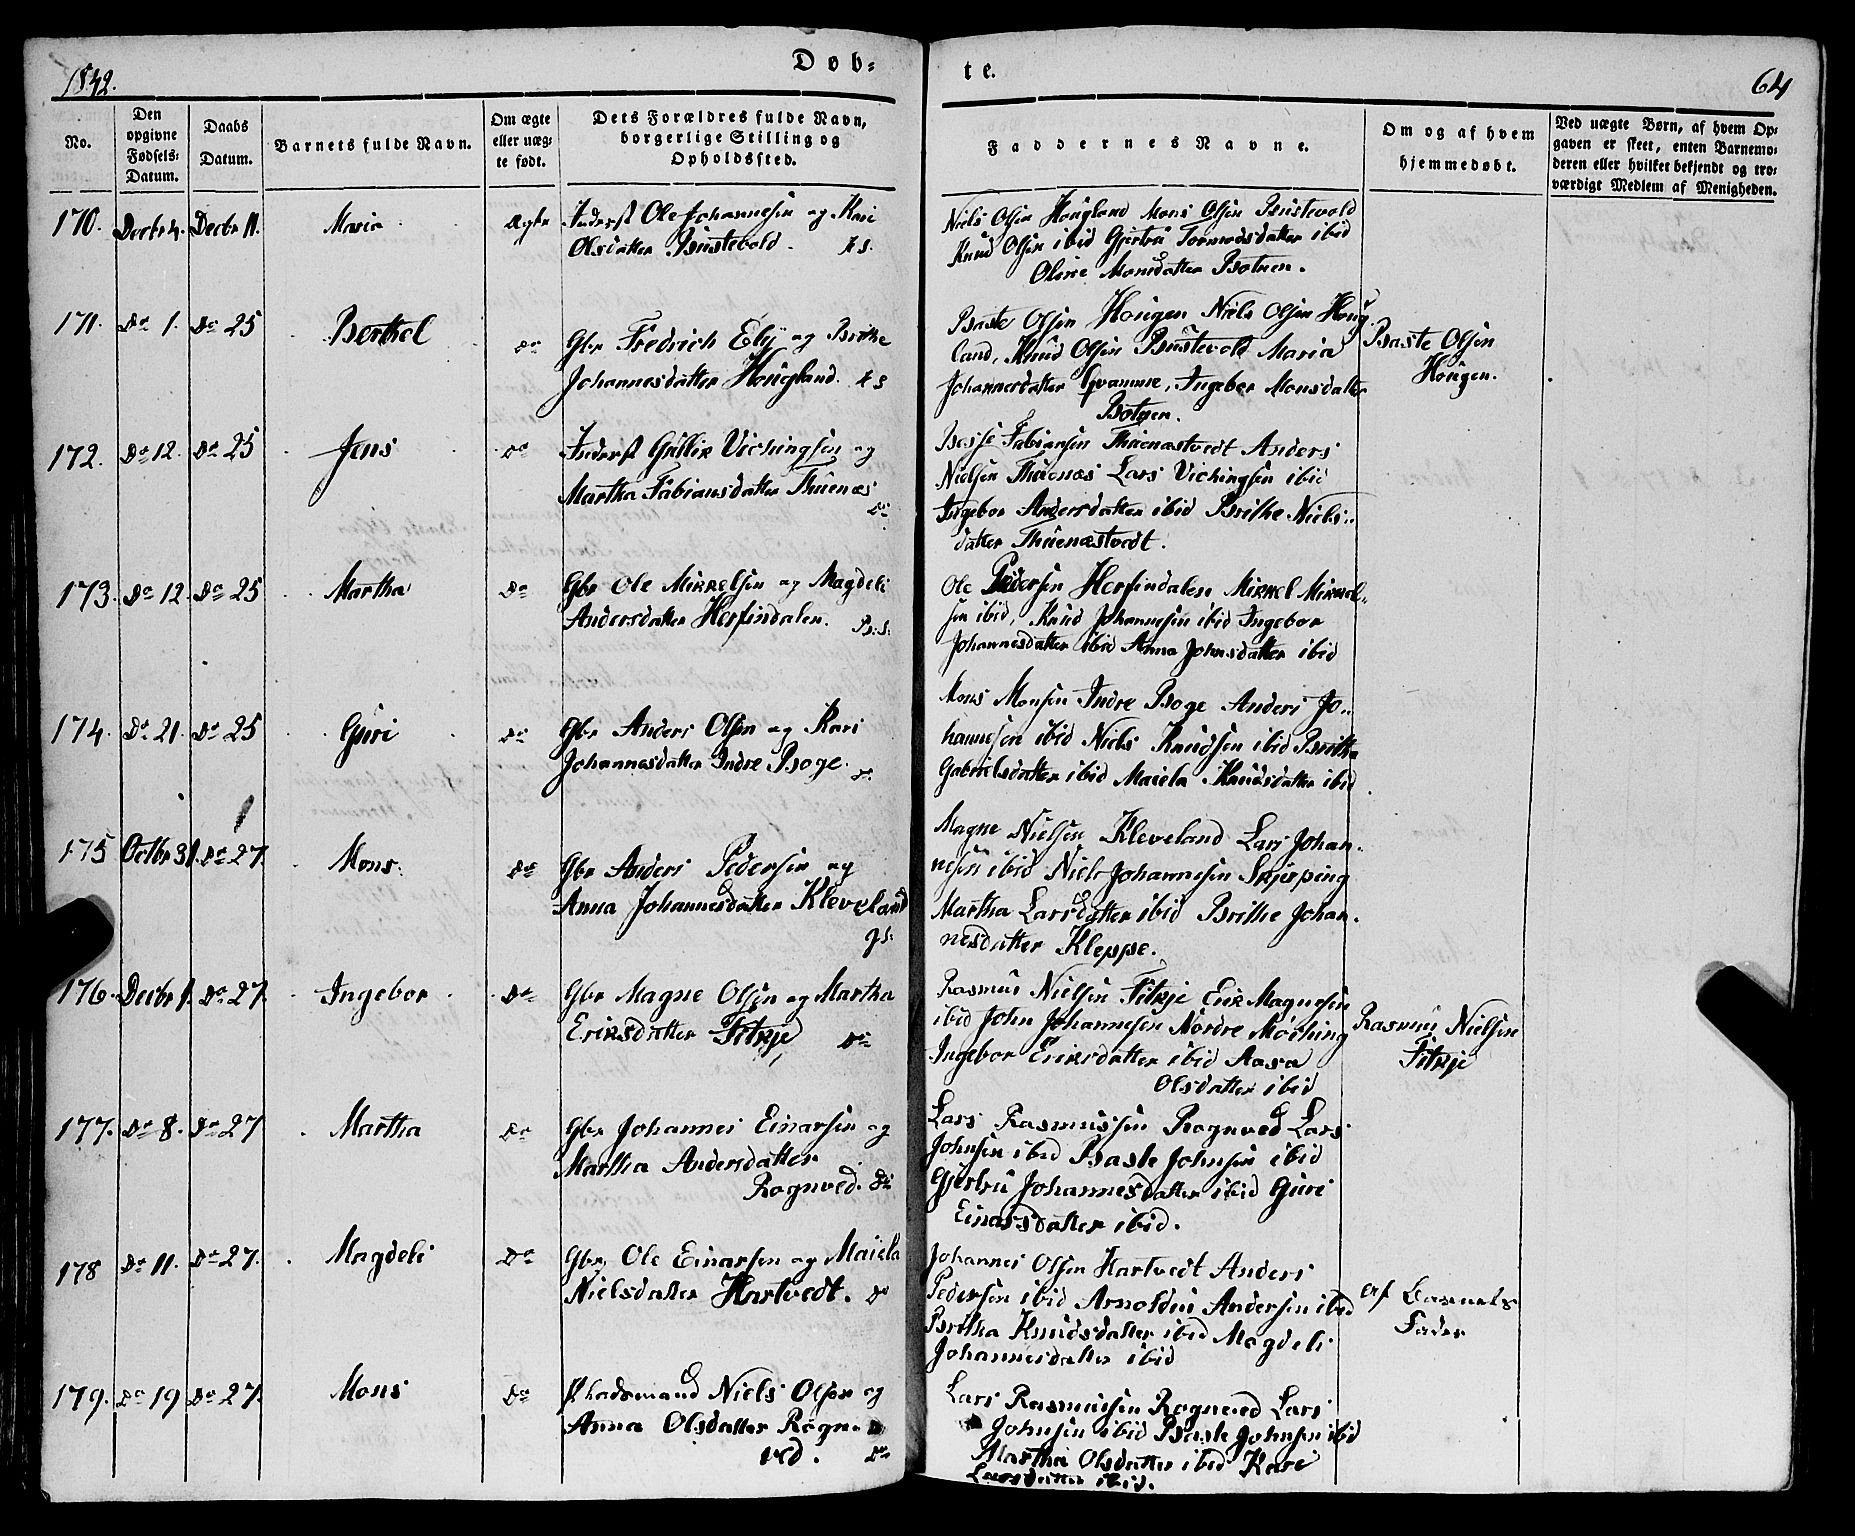 1842.
Døb-
te.
64
No.
Den
opgivne
Fødsels-
Datum.
Daabs
Datum.
Barnets fulde Navn.
Om ægte
eller uæg-
te født.
Dets Forældres fulde Navn,
borgerlige Stilling og
Opholdssted.
Faddernes Navne.
Om og af hvem
hjemmedøbt.
Ved uægte Børn, af hvem Op-
gaven er skeet, enten Barnemo-
deren eller hvilket bekjendt og tro-
værdigt Medlem af Menigheden.
170. Decbr 4. Decbr 11. Maria Ægte
Inderst Ole Johannesen og Kari
Olsdatter Bustevold.
Niels Olsen Hougland Mons Olsen Bustevold
Knud Olsen ibid Gjertru Tormodsdatter ibid
Olive Monsdatter Botnen.
171. Do 1. Do 25 Berthel Do
Gbr Fredrich Ely og Brithe
Johannesdatter Hougland.
Baste Olsen Hougen Niels Olsen Houg-
land, Knud Olsen Bustevold Maria
Johannesdatter Qvamme, Ingebor Monsdatter
Botnen.
Baste Olsen
Hougen.
172. Do 12. Do 25 Jens Do
Inderst Gullik Vichingsen og
Martha Fabiansdatter Thuenæs
Do
Bessi Fabiansen Thuenæstvedt Anders
Nielsen Thuenæs Lars Vichingsen ibid
Ingebor Andersdatter ibid Brithe Niels-
datter Thuenæstvedt.
173. Do 12. Do 25 Martha Do
Gbr Ole Mikkelsen og Magdeli
Andersdatter Herfindalen. B:S:
Ole Pedersen Herfindalen Mikkel Mikkel-
sen ibid, Knud Johannesen ibid Ingebor
Johannesdatter ibid Anna Johnsdatter ibid
174. Do 21. Do 25 Guri Do
Gbr Anders Olsen og Kari
Johannesdatter Indre Boge.
Mons Monsen Indre Boge Anders Jo-
hannesen ibid Niels Knudsen ibid Britha
Gabrielsdatter ibid Maiela Knudsdatter ibid
175 Octbr 31. Do 27. Mons. Do
Gbr Anders Pedersen og
Anna Johannesdatter Kleveland
Magne Nielsen Kleveland Lars Johan-
nesen ibid Niels Johannesen Skjerping
Martha Larsdatter ibid Brithe Johan-
nesdatter Kleppe.
176. Decbr 1. Do 27. Ingebor Do
Gbr Magne Olsen og Martha
Eriksdatter Fitkje Do
Rasmus Nielsen Fitkje Erik Magnesen
ibid John Johannesen Nordre Möching
Ingebor Eriksdatter ibid Aasa
Olsdatter ibid
Rasmus Nielsen
Fitkje
177. Do 8. Do 27 Martha Do
Gbr Johannes Einarsen og
Martha Andersdatter
Rognved. Do
Lars Rasmussen Rognved Lars
Johnsen ibid Baste Johnsen ibid
Gjertru Johannesdatter ibid Guri
Einarsdatter ibid.
178 Do 11. Do 27. Magdeli Do
Gbr Ole Einarsen og Maiela
Nielsdatter Hartvedt. Do
Johannes Olsen Hartvedt Anders
Pedersen ibid Arnoldus Andersen ibid
Britha Knudsdatter ibid Magdeli
Johannesdatter ibid
Af Barnets
Fader
179. Do 19 Do 27. Mons Do
Niels Olsen og
Anna Olsdatter Rogn-
ved. Do
Lars Rasmusen Rognved Lars
Johnsen ibid Baste Johnsen ibid
Martha Olsdatter ibid Kari
Larsdatter ibid.